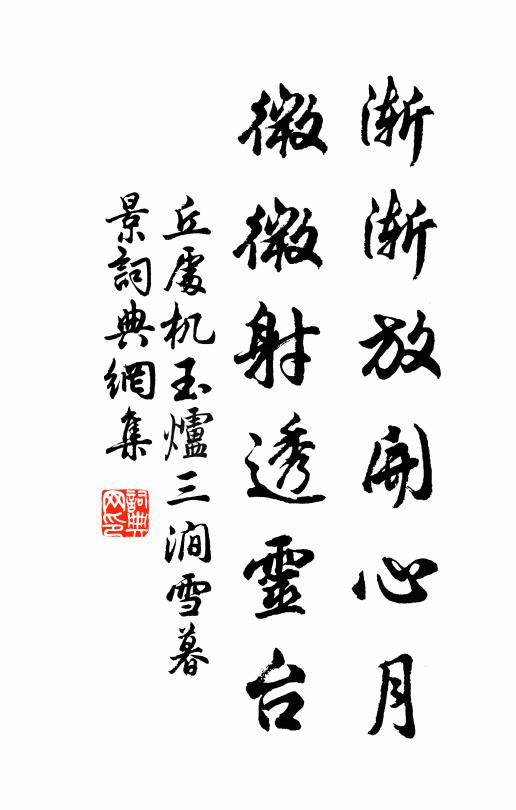 渐渐放開心月
微微射透靈台
丘處机玉爐三澗雪暮
景詞典網集
詞典网印